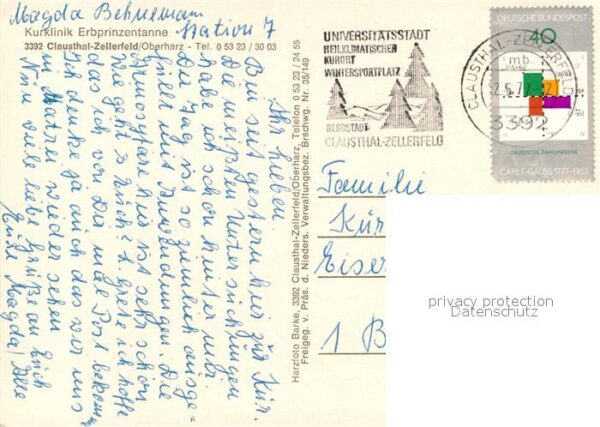 Magda Behneman
Station 7
Kurklinik Erbprinzentanne
3392 Clausthal-Zellerfeld/Oberharz - Tel. 0 53 23 / 30 03
Ihr Lieben.
Bin seit gestern hier zur Kur.
Die meisten Untersuchungen
habe ich schon hinter mir
Der Tag ist so ziemlich ausge-
füllt mit Anwendungen. Die
hier ist sehr schön
Wie geht es Euch? Grete ich hoffe
das wir Die Post bekom
Ich denke ja auch das wir uns
im wieder sehen
Nun viele liebe Grüße an Euch
Alle
Eure Magda
Harzfoto Barke, 3392 Clausthal-Zellerfeld/Oberharz, Telefon 0 53 23 / 24 55
Freigeg. v. Präs. d. Nieders. Verwaltungsbez. Brschwg. Nr. 35/149
UNIVERSITÄTSSTADT
HEILKLIMATISCHER
KURORT
WINTERSPORTPLATZ
BERGSTADT
CLAUSTHAL-ZELLERFELD
CLAUSTHAL-ZELLERFELD
mb
3392
DEUTSCHE BUNDESPOST
40
GAUSSSCHE ZAHLENEBENE
CARL F. GAUSS 1777-1855
Familie
Kür
Eiser
1 B
privacy protection
Datenschutz